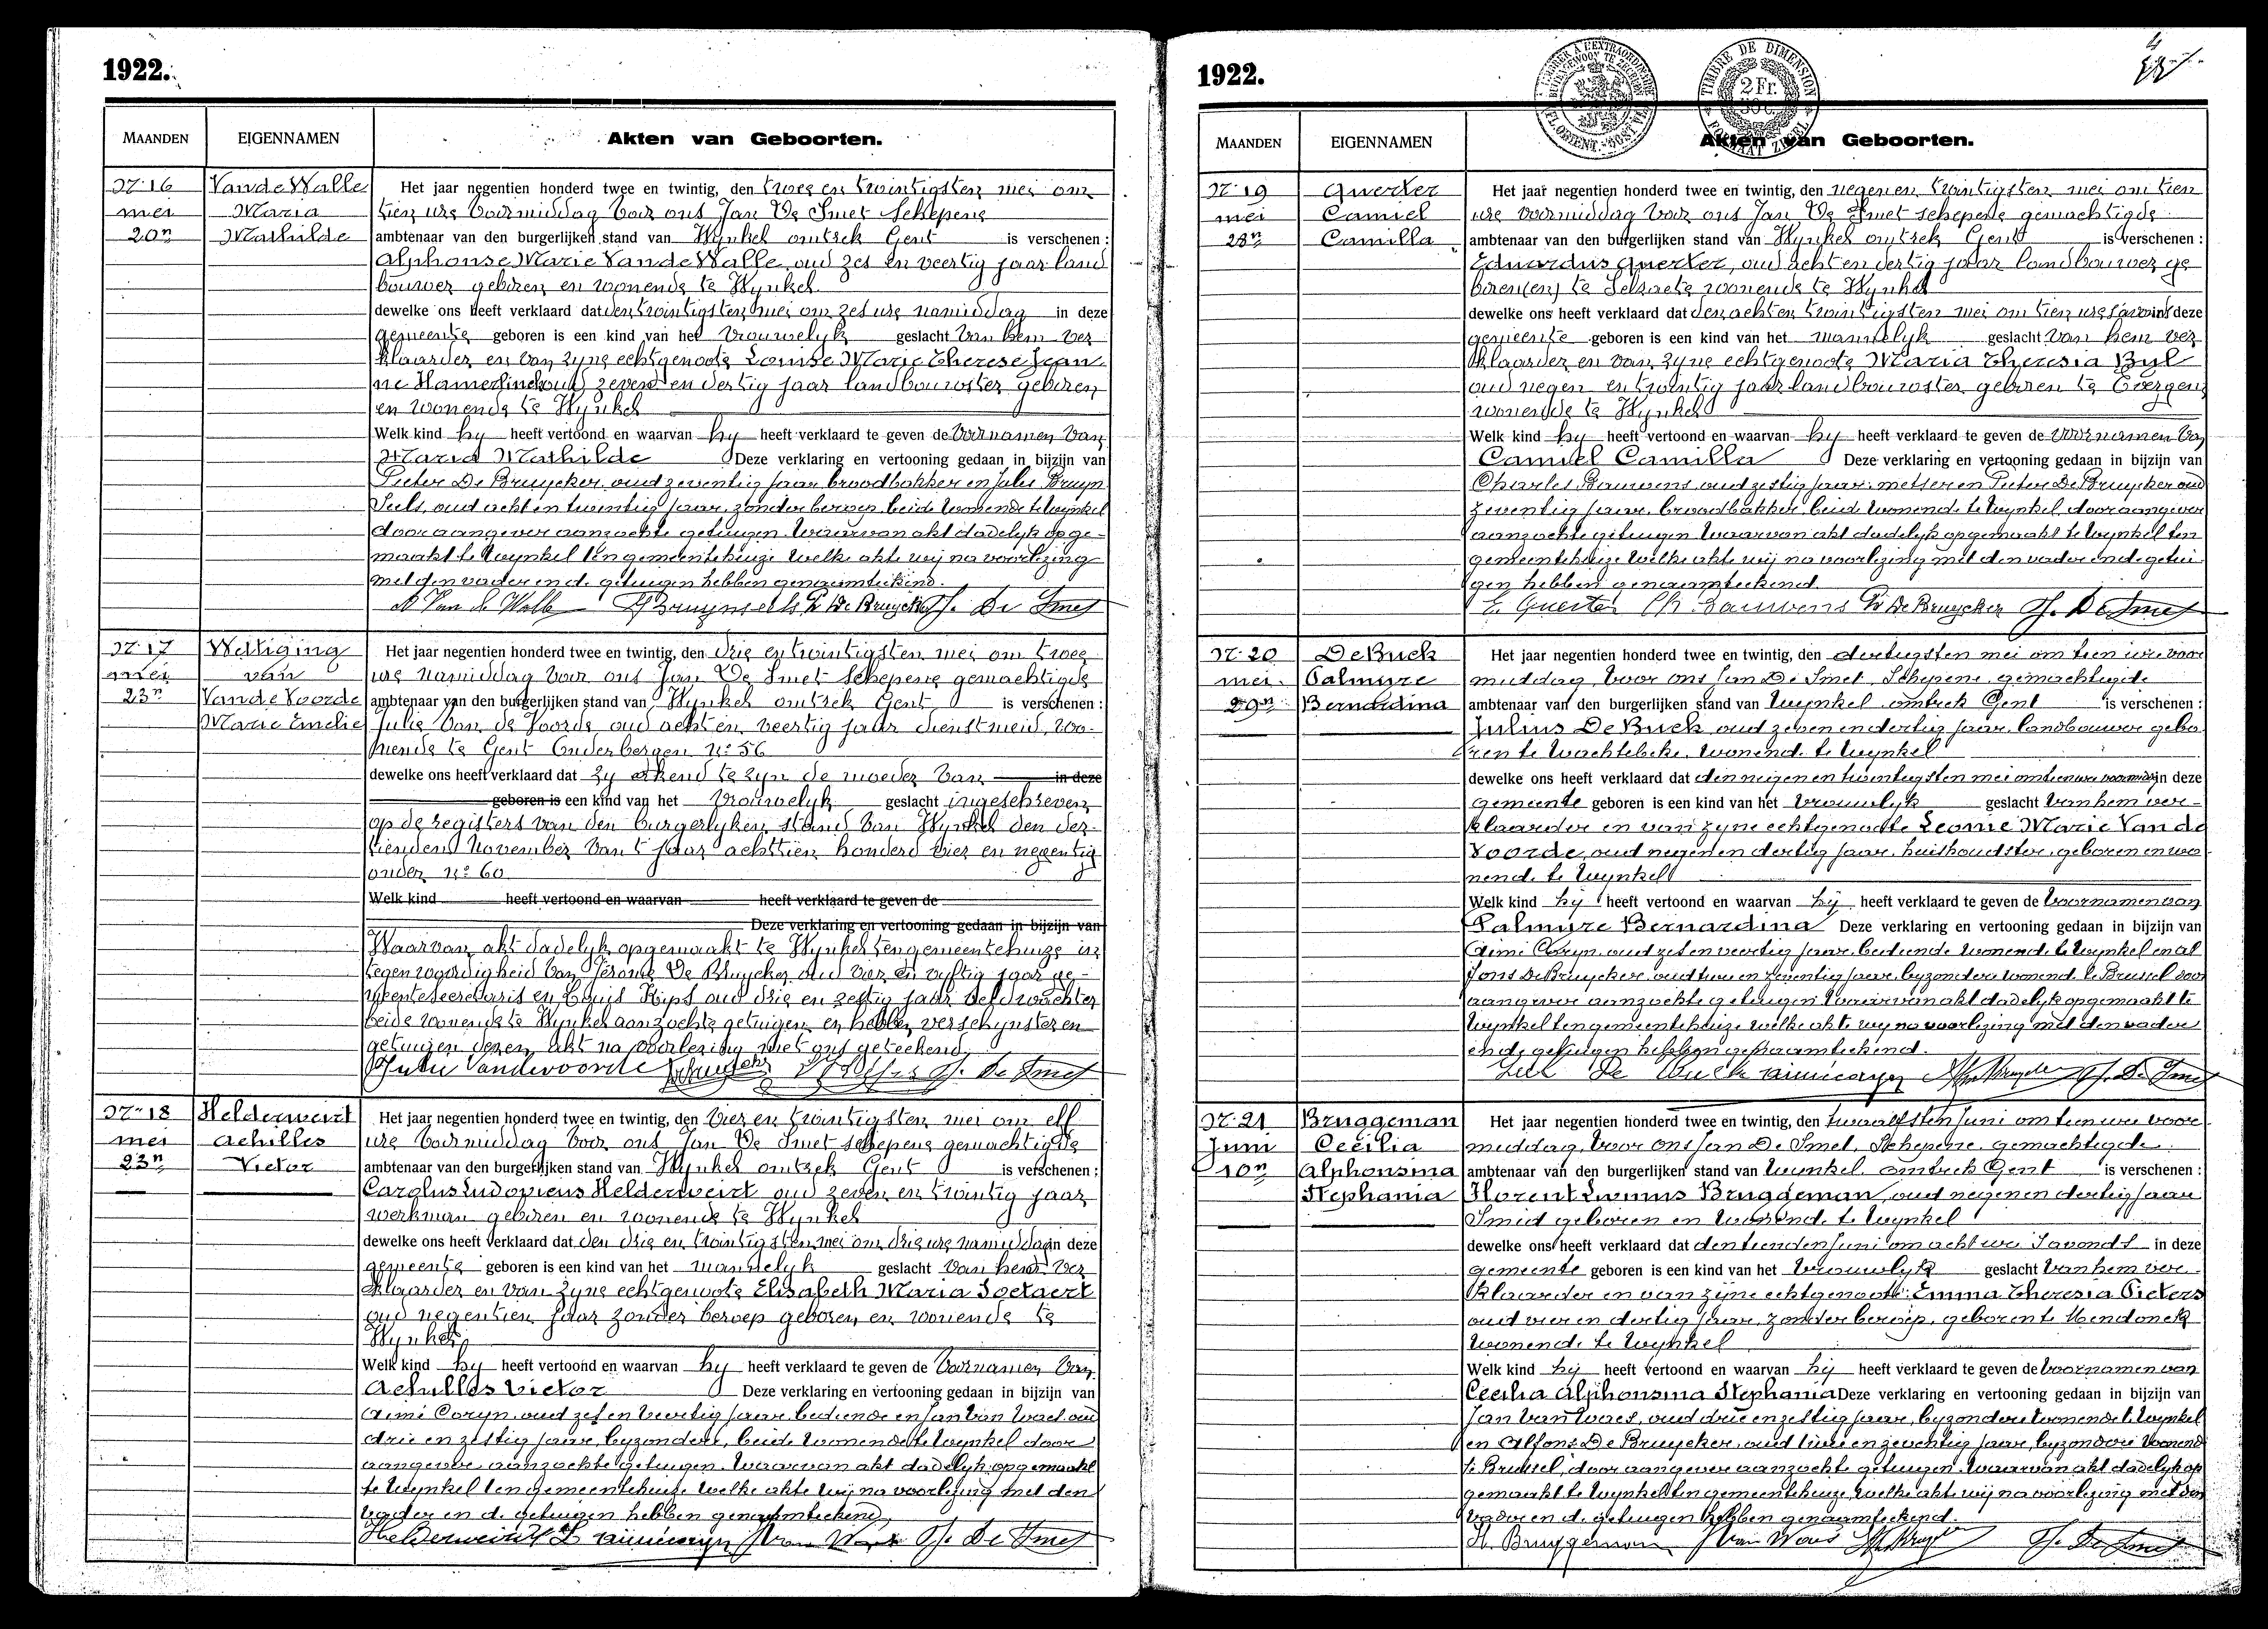 1922.
MAANDEN EIGENNAMEN Akten van Geboorten.
N: 16 Van de Walle Het jaar negentien honderd twee en twintig, den twee en twintigsten mei om
mei Maria tien ure voormiddag voor ons Jan De Smet Schepene
20n Mathilde ambtenaar van den burgerlijken stand van Wynkel omtrek Gent is verschenen :
Alphonse Marie Van de Walle, oud zes en veertig jaar land
bouwer geboren en wonende te Wynkel
dewelke ons heeft verklaard dat den twintigsten mei om zes ure namiddag in deze
gemeente geboren is een kind van het vrouwelyk geslacht van hem ver
klaarder en van zyne echtgenoote Louise Marie Therese Jean
ne Hamerlinck oud zeven en dertig jaar landbouwster geboren
en wonende te Wynkel
Welk kind hy heeft vertoond en waarvan hy heeft verklaard te geven de voornamen van
Maria Mathilde Deze verklaring en vertooning gedaan in bijzijn van
Pieter De Bruycker, oud zeventig jaar, broodbakker en Jules Bruyn
Seels, oud acht en twintig jaar, zonder beroep, beide wonende te Wynkel
door aangever aanzochte getuigen. Waarvan akt dadelyk opge-
maakt te Wynkel ten gemeentehuize welke akte wij na voorlezing
met den vader en de getuigen hebben genaamteekend.
A Van de Walle J Bruynseels P. De Bruycker J. De Smet
N: 17 Wettiging Het jaar negentien honderd twee en twintig, den drie en twintigsten mei om twee
mei van ure namiddag voor ons Jan De Smet Schepene gemachtigde
23n Van de Voorde ambtenaar van den burgerlijken stand van Wynkel omtrek Gent is verschenen :
Marie Emelie Julie Van de Voorde oud acht en veertig jaar dienstmeid, wo-
nende te Gent Onderbergen N: 56
dewelke ons heeft verklaard dat zy erkend te zyn de moeder van in deze
geboren is een kind van het vrouwelyk geslacht ingeschreven
op de registers van den burgerlyken stand van Wynkel den der-
tienden November van 't jaar achttien honderd vier en negentig
onder N: 60
Welk kind heeft vertoond en waarvan heeft verklaard te geven de
Deze verklaring en vertooning gedaan in bijzijn van
Waarvan akt dadelyk opgemaakt te Wynkel ten gemeentehuize in
tegenwoordigheid van Jérome De Bruycker, oud vier en vyftig jaar ge-
meentesecretaris en Louis Kips oud drie en zestig jaar veldwachter
beide wonende te Wynkel aanzochte getuigen en hebben verschynster en
getuigen dezen akt na voorlezing met ons geteekend
Julie Vandevoorde J. De Smet
N: 18 Helderweirt Het jaar negentien honderd twee en twintig, den vier en twintigsten mei om elf
mei Achilles ure voormiddag voor ons Jan De Smet schepene gemachtigde
23n Victor ambtenaar van den burgerlijken stand van Wynkel omtrek Gent is verschenen :
Carolus Ludovicus Helderweirt oud zeven en twintig jaar
werkman geboren en wonende te Wynkel
dewelke ons heeft verklaard dat den drie en twintigsten mei om drie ure namiddag in deze
gemeente geboren is een kind van het mannelyk geslacht van hem ver
klaarder en van zyne echtgenoote Elisabeth Maria Soetaert
oud negentien jaar zonder beroep geboren en wonende te
Wynkel
Welk kind hy heeft vertoond en waarvan hy heeft verklaard te geven de voornamen van
Achilles Victor Deze verklaring en vertooning gedaan in bijzijn van
Aimé Coryn, oud zes en veertig jaar, bediende en Jan Van Waes oud
drie en zestig jaar, byzondere, beide wonende te Wynkel door
aangever aanzochte getuigen. Waarvan akt dadelyk opgemaakt
te Wynkel ten gemeentehuize welke akte wij na voorlezing met den
vader en de getuigen hebben genaamteekend,
Helderweirt L aimécoryn J Van Waes J. De Smet
1922.
TIMBRE DE DIMENSION 2 Fr.
MAANDEN EIGENNAMEN Akten van Geboorten.
N: 19 Querter Het jaar negentien honderd twee en twintig, den negen en twintigsten mei om tien
mei Camiel ure voormiddag voor ons Jan De Smet schepene gemachtigde
28n Camilla ambtenaar van den burgerlijken stand van Wynkel omtrek Gent is verschenen :
Eduardus Querter, oud acht en dertig jaar landbouwer ge
boren(en) te Selzaete wonende te Wynkel
dewelke ons heeft verklaard dat den acht en twintigsten mei om tien ure s'avonds in deze
gemeente geboren is een kind van het mannelyk geslacht van hem ver
klaarder en van zyne echtgenoote Maria Theresia Byl
oud negen en twintig jaar landbouwster geboren te Evergem
wonende te Wynkel
Welk kind hy heeft vertoond en waarvan hy heeft verklaard te geven de voornamen van
Camiel Camilla Deze verklaring en vertooning gedaan in bijzijn van
Charles Bauwens, oud zestig jaar, metser en Pieter De Bruycker oud
zeventig jaar, broodbakker, beide wonende te Wynkel door aangever
aanzochte getuigen Waarvan akt dadelyk opgemaakt te Wynkel ten
gemeentehuize welke akte wij na voorlezing met den vader en de getui
gen hebben genaamteekend.
E. Querter Ch Bauwens P. De Bruycker J. De Smet
N: 20 De Buck Het jaar negentien honderd twee en twintig, den dertigsten mei om tien ure voor
mei. Palmyre middag, voor ons Jan De Smet, Schepene, gemachtigde
29n Bernardina ambtenaar van den burgerlijken stand van Wynkel omtrek Gent is verschenen :
Julius De Buck, oud zeven en dertig jaar, landbouwer gebo
ren te Wachtebeke, wonende te Wynkel
dewelke ons heeft verklaard dat den negen en twintigsten mei om tien ure voormid in deze
gemeente geboren is een kind van het vrouwlyk geslacht van hem ver-
klaarder en van zyne echtgenoote Leonie Marie Van de
Voorde, oud negen en dertig jaar, huishoudster, geboren en wo
nende te Wynkel
Welk kind hij heeft vertoond en waarvan hij heeft verklaard te geven de voornamen van
Palmyre Bernardina Deze verklaring en vertooning gedaan in bijzijn van
Aimé Coryn, oud zes en veertig jaar, bediende wonende te Wynkel en Al
fons De Bruycker, oud twee en zeventig jaar, byzondere wonende te Brussel door
aangever aanzochte getuigen Waarvan akt dadelyk opgemaakt te
Wynkel ten gemeentehuize welke akte wij na voorlezing met den vader
en de getuigen hebben genaamteekend.
Jul De Buck aimécoryn J. De Smet
N: 21 Bruggeman Het jaar negentien honderd twee en twintig, den twaalfsten Juni om tien ure voor
Juni Cecilia middag, voor ons Jan De Smet, Schepene, gemachtigde
10n Alphonsina ambtenaar van den burgerlijken stand van Wynkel omtrek Gent is verschenen :
Stephania Florent Livinus Bruggeman, oud negen en dertig jaar
Smid geboren en wonende te Wynkel
dewelke ons heeft verklaard dat den tienden Juni om acht ure s'avonds in deze
gemeente geboren is een kind van het vrouwlyk geslacht van hem ver-
klaarder en van zijne echtgenoote Emma Theresia Pieters
oud vier en dertig jaar, zonder beroep, geboren te Mendonck
wonende te Wynkel
Welk kind hij heeft vertoond en waarvan hij heeft verklaard te geven de voornamen van
Cecilia Alphonsina Stephania Deze verklaring en vertooning gedaan in bijzijn van
Jan Van Waes, oud drie en zestig jaar, byzondere wonende te Wynkel
en Alfons De Bruycker, oud twee en zeventig jaar, byzondere wonende
te Brussel, door aangever aanzochte getuigen. Waarvan akt dadelyk op
gemaakt te Wynkel ten gemeentehuize welke akte wij na voorlezing met den
vader en de getuigen hebben genaamteekend.
Fl. Bruggeman J Van Waes J. De Smet